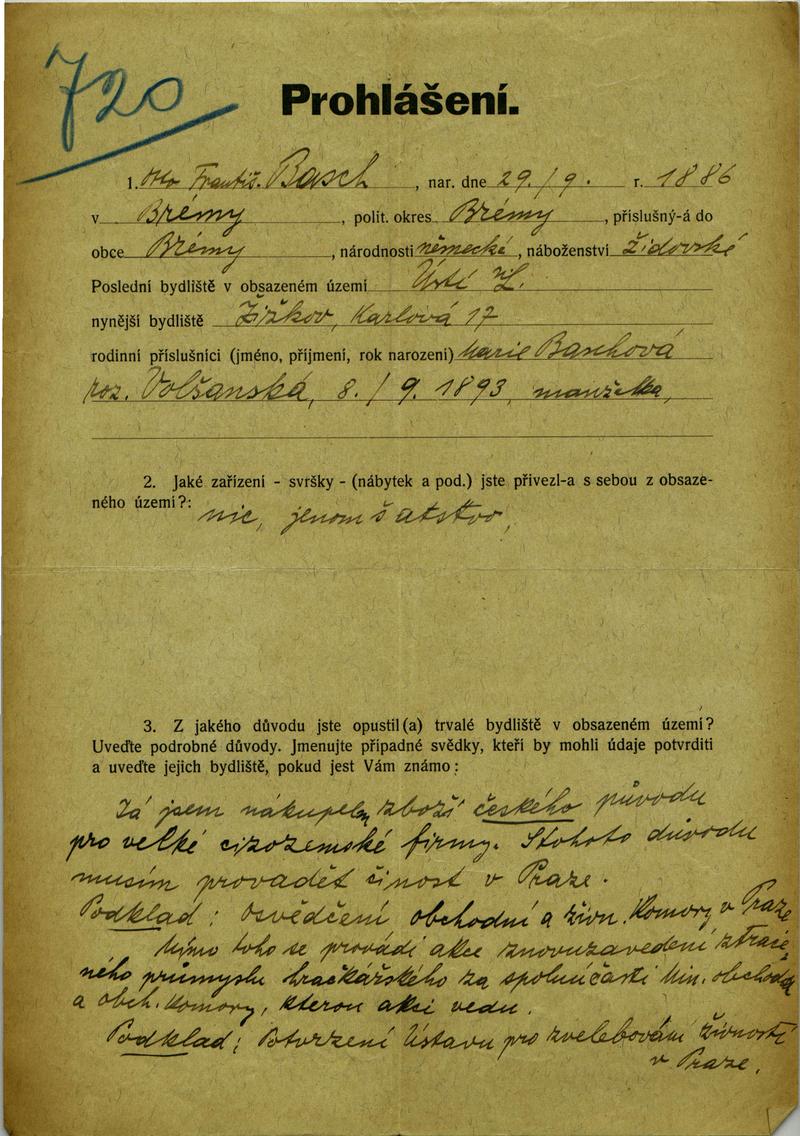 720
Prohlášení.
1. Otto Františ. Basch, nar. dne 29./9. r. 1886
v Brémy, polit. okres Brémy, příslušný-á do
obce Brémy, národnosti německé, náboženství židovské
Poslední bydliště v obsazeném území Ústí n/L.
nynější bydliště Žižkov, Karlová 17
rodinní příslušníci (jméno, příjmení, rok narození) Marie Baschová
roz. Volšanská, 8./9. 1893, manželka,
2. Jaké zařízení - svršky - (nábytek a pod.) jste přivezl-a s sebou z obsaze-
ného území?:
nic, jenom šatstvo,
3. Z jakého důvodu jste opustil(a) trvalé bydliště v obsazeném území?
Uveďte podrobné důvody. Jmenujte případné svědky, kteří by mohli údaje potvrditi
a uveďte jejich bydliště, pokud jest Vám známo:
Já jsem nákupčím zboží českého původu
pro velké cizozemské firmy. Stohoto důvodu
musím provadět činost v Praze.
Podklad: Osvědčení obchodní a živn. Komory v Praze
Mimo toho se provádí akce znovuzavedení ztrace-
ného průmyslu hračkářského za spoluúčasti Min. obchodu
a obch. Komory, kterou akci vedu.
Podklad: Potvrzení Ústavu pro zvelebování živností
v Praze.